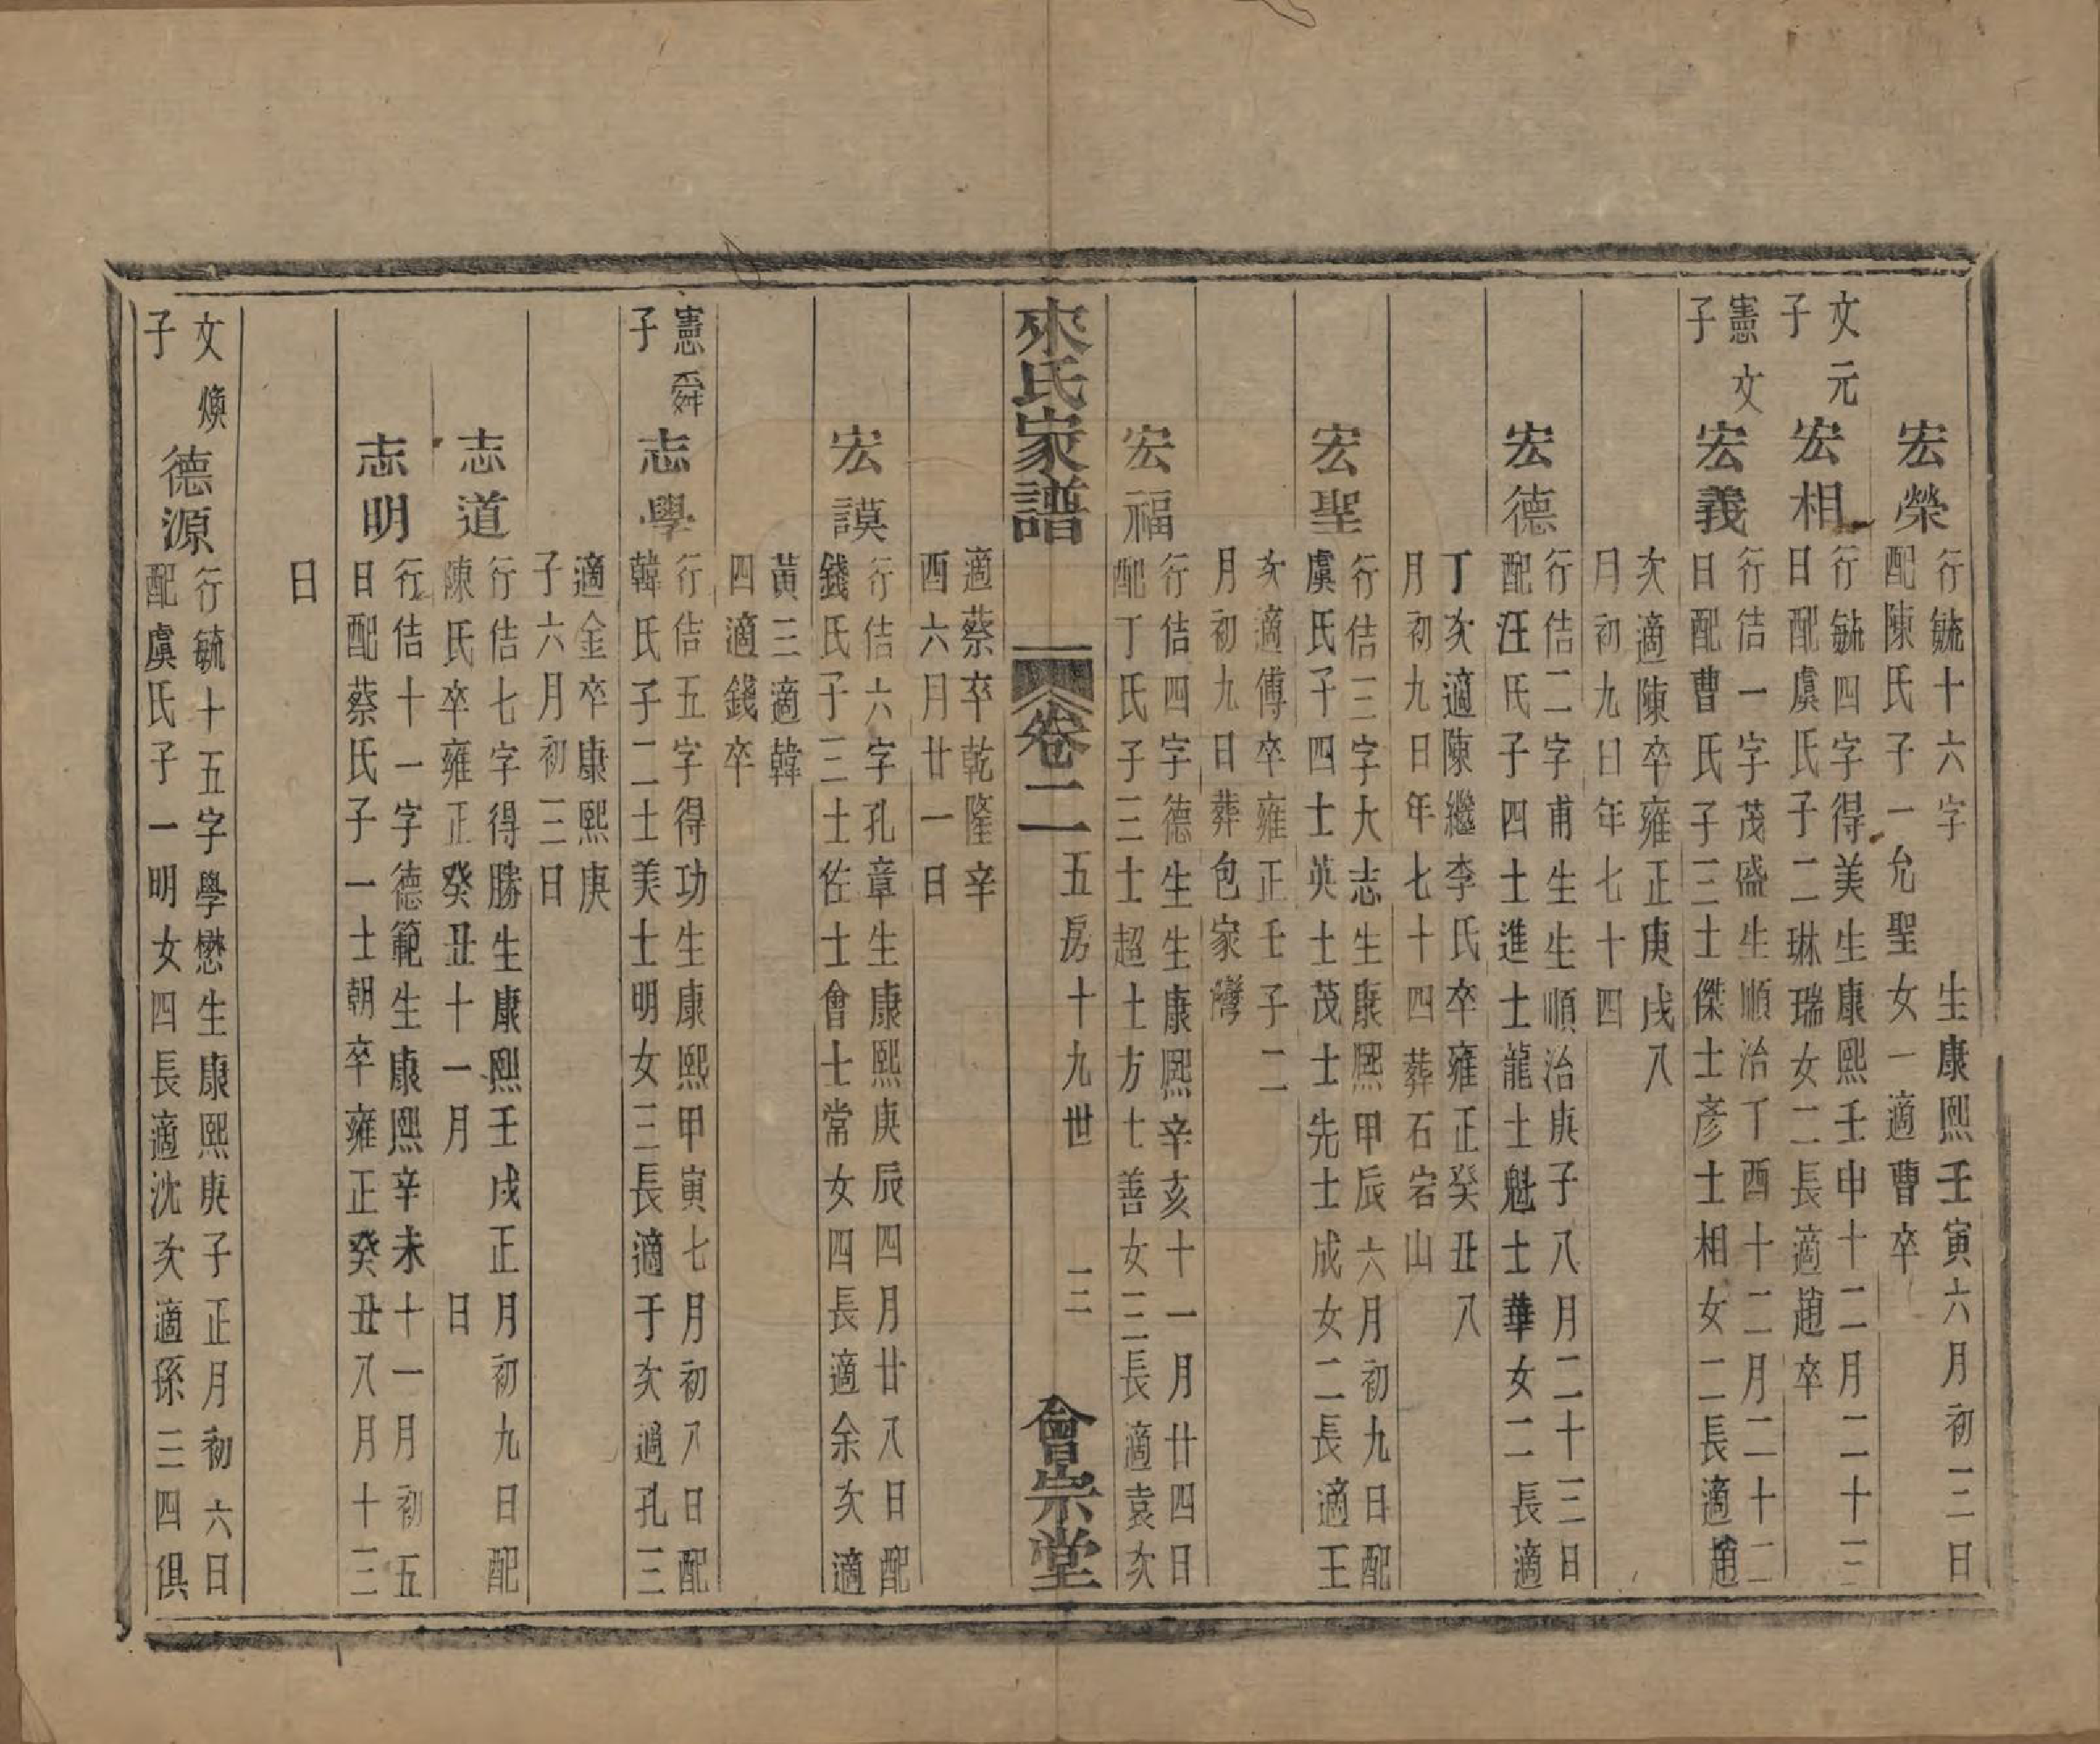 宏榮
行毓十六字　生康熙壬寅六月初三日
配陳氏子一允聖女一適曹卒
文元
子
宏相
行毓四字得美生康熙壬申十二月二十三
日配虞氏子二琳瑞女二長適趙卒
憲文
子
宏義
行佶一字茂盛生順治丁酉十二月二十二
日配曹氏子三士傑士彥士相女二長適趙
次適陳卒雍正庚戌八
月初九日年七十四
宏德
行佶二字甫生生順治庚子八月二十三日
配汪氏子四士進士龍士魁士華女二長適
丁次適陳繼李氏卒雍正癸丑八
月初九日年七十四葬石宕山
宏聖
行佶三字大志生康熙甲辰六月初九日配
虞氏子四士英士茂士先士成女二長適王
次適傅卒雍正壬子二
月初九日葬包家灣
宏福
行佶四字德生生康熙辛亥十一月廿四日
配丁氏子三士超士方士善女三長適袁次
來氏家譜　卷二　五房十九世　三　會宗堂
適蔡卒乾隆辛
酉六月廿一日
宏謨
行佶六字孔章生康熙庚辰四月廿八日配
錢氏子三士佐士會士常女四長適余次適
黃三適韓
四適錢卒
憲舜
子
志學
行佶五字得功生康熙甲寅七月初八日配
韓氏子二士美士明女三長適于次適孔三
適金卒康熙庚
子六月初三日
志道
行佶七字得勝生康熙壬戌正月初九日配
陳氏卒雍正癸丑十一月　日
志明
行佶十一字德範生康熙辛未十一月初五
日配蔡氏子一士朝卒雍正癸丑八月十三
日
文煥
子
德源
行毓十五字學懋生康熙庚子正月初六日
配虞氏子一明女四長適沈次適孫三四俱